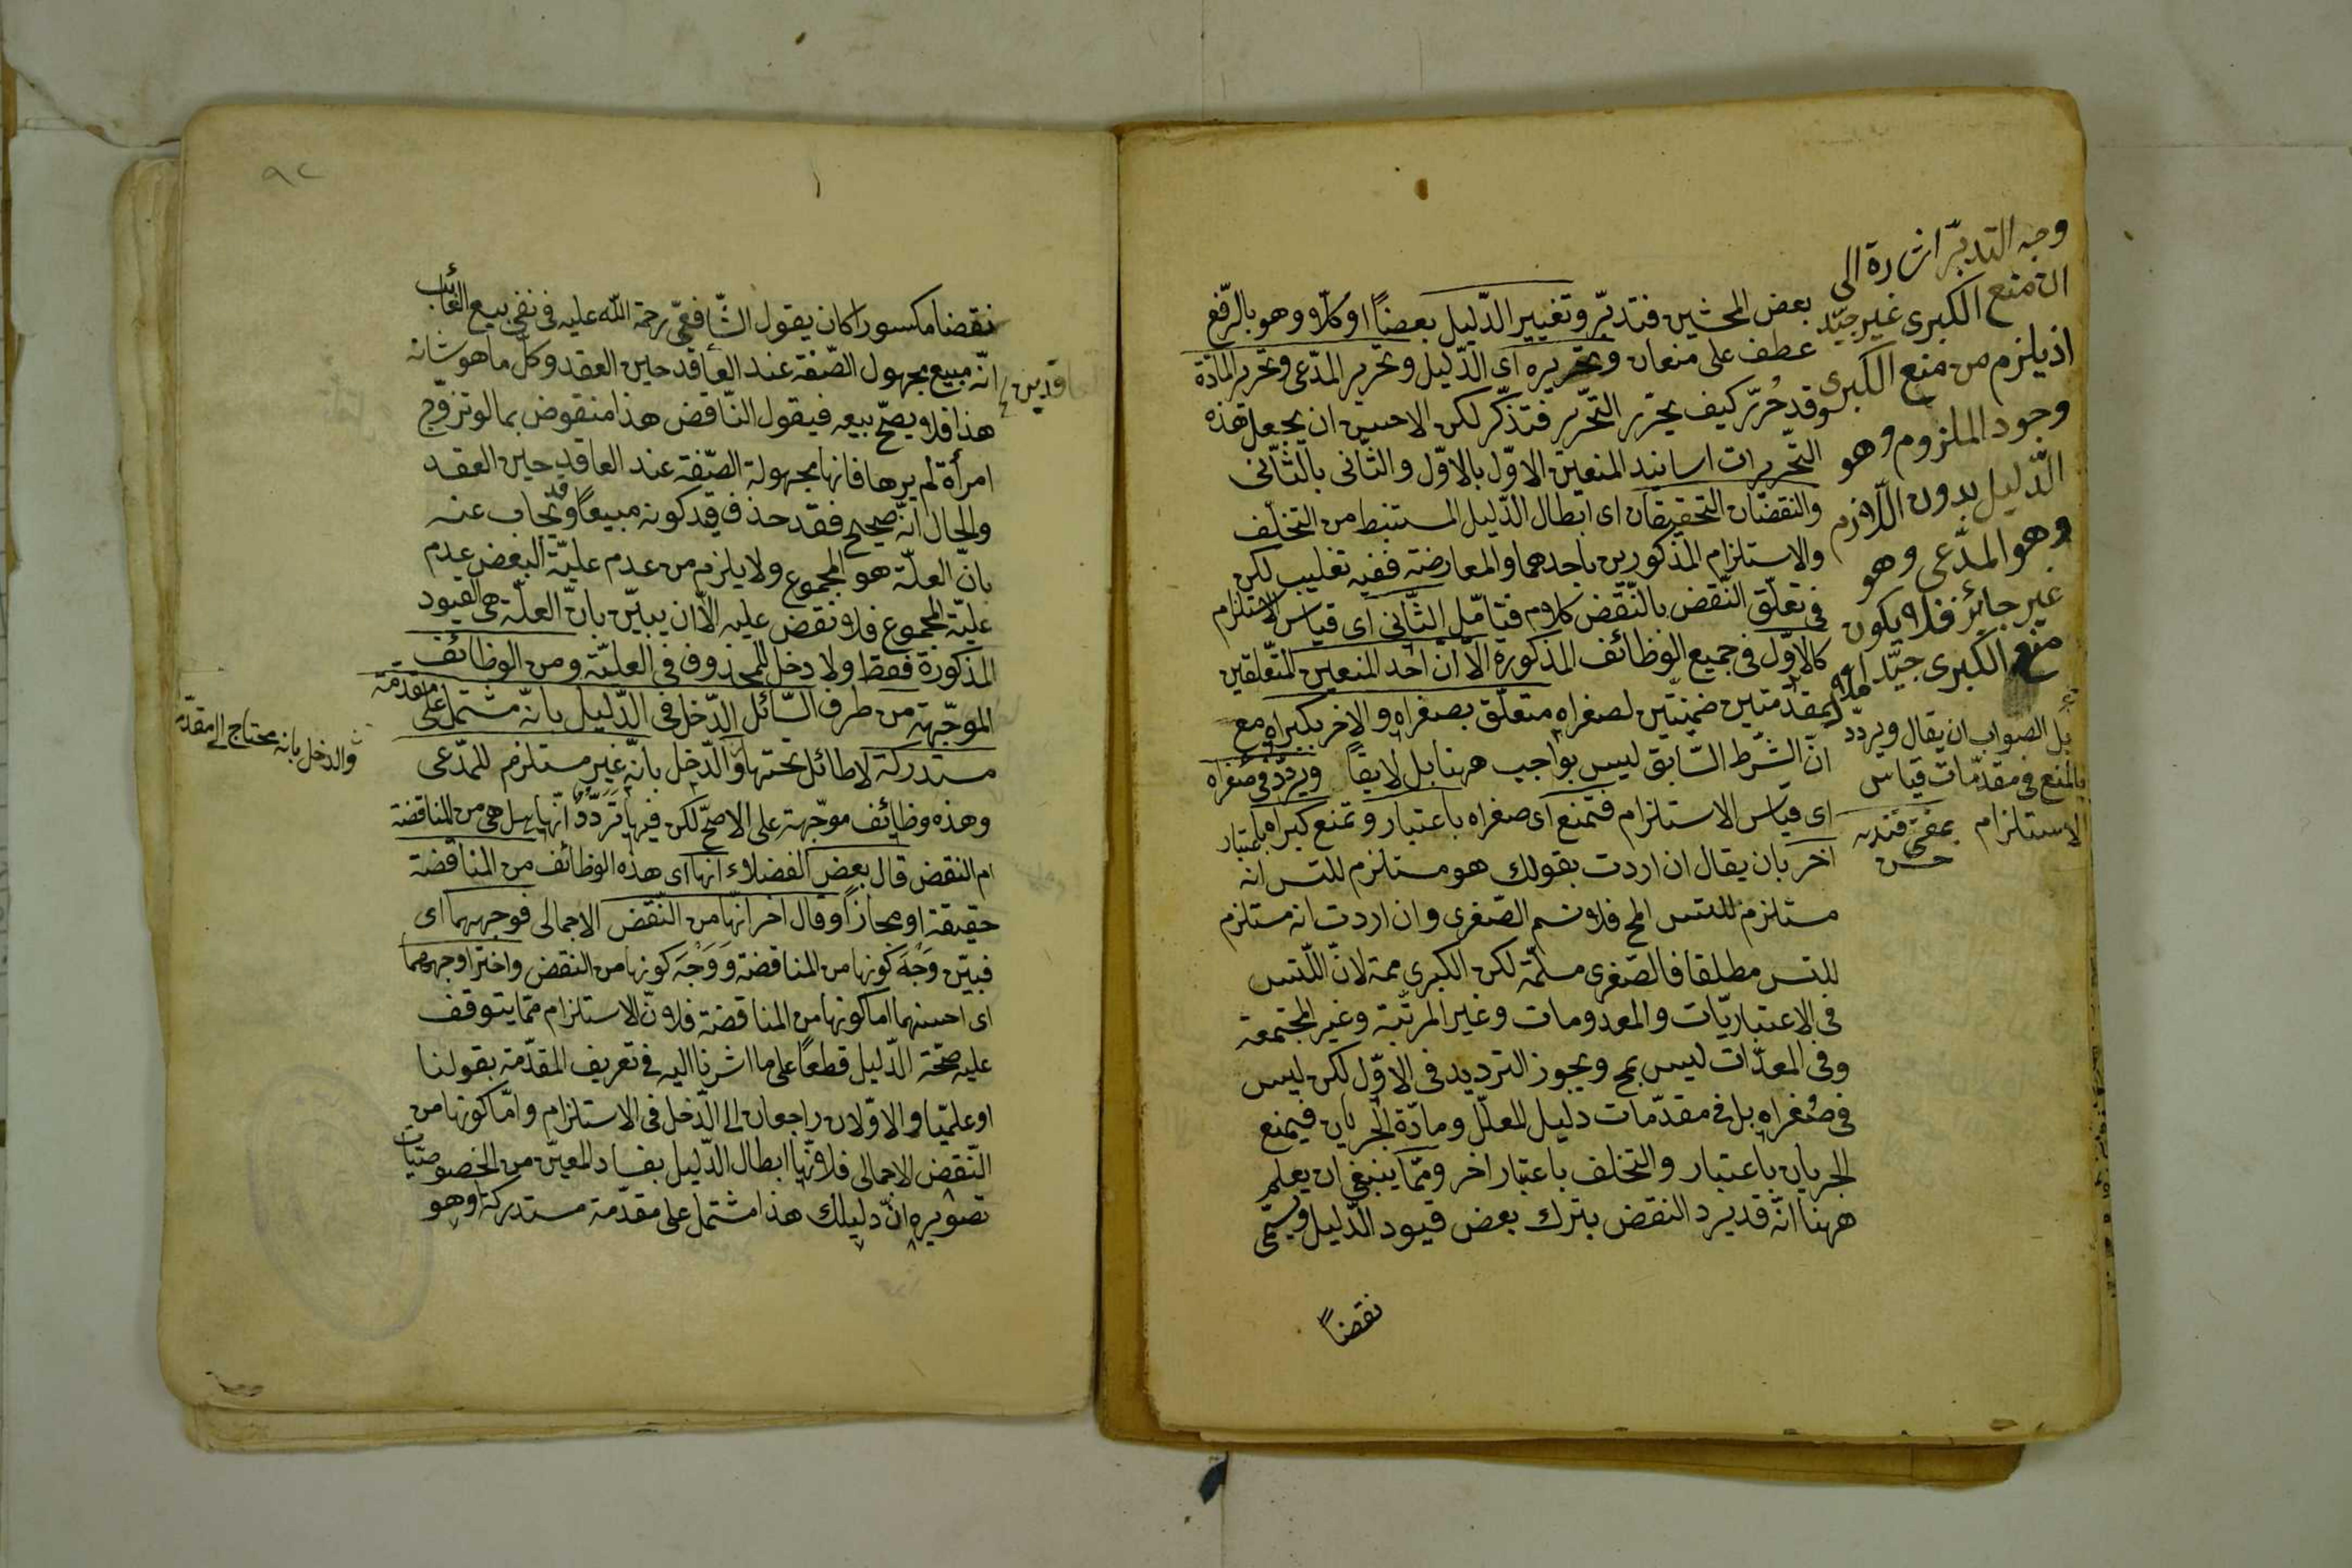 بعض المحشين فتدبّر وتغيير الدّليل بعضاً او كلّا وهو بالرّفع
عطف على منعان وتحريره اى الدّليل وتحرير المدّعى وتحرير المادّة
وقد حُرّر كيف يحرّر التّحرير فتذكّر لكن الاحسن ان يجعل هذه
التّحريرات اسانيد المنعين الاوّل بالاوّل والثّانى بالثّانى
والنقضان التحقيقان اى ابطال الدّليل المستنبط من التخلّف
والاستلزام المذكورين باحدهما والمعارضة ففيه تغليب لكن
فى تعلّق النّقض بالنّقض كلام فتأمّل الثّانى اى قياس الاستلزام
كالاوّل فى جميع الوظائف المذكورة الّا انّ احد المنعين المتّعلقين
لمقدّمتين ضمنتين لصغراه متعلّق بصغراه والاخر بكبراه مع
انّ الشّرط السّابق ليس بواجب ههنا بل لايقا ويردّد فى صغراه
اى قياس الاستلزام فتمنع اى صغراه باعتبار وتمنع كبراه باعتبار
اخر بان يقال ان اردت بقولك هو مستلزم للتس انه
مستلزم للتس المح فلا نسم الصّغرى وان اردت انه مستلزم
للتس مطلقا فالصّغرى مسلّمة لكن الكبرى ممة لانّ التس
فى الاعتباريّات والمعدومات وغير المرتّبة وغير المجتمعة
وفى المعدّات ليس بمح ويجوز الترديد فى الاوّل لكن ليس
فى صُغراه بل فى مقدّمات دليل المعلّل ومادّة الجريان فيمنع
الجريان باعتبار والتخلف باعتبار اخر وممّا ينبغى ان يعلم
ههنا انّه قد يرد النقض بترك بعض قيود الدّليل ويسمّى
نقضاً
وجه التدبّر اشارة الى
ان منع الكبرى غير جيّد
اذ يلزم من منع الكبرى
وجود الملزوم وهو
الدّليل بدون اللّازم
وهو المدّعى وهو
غير جائز فلا يكون
منع الكبرى جيّد
بل الصواب ان يقال ويردّد
بالمنع فى مقدّمات قياس
الاستلزام
٩٢
نقضا مكسورا كان يقول الشّافعىّ رحمة اللّه عليه فى نفى بيع الغائب
انّه مبيع مجهول الصّفة عند العاقد حين العقد وكلّ ما هو شانه
هذا فلا يصحّ بيعه فيقول النّاقض هذا منقوض بما لو تزوّج
امرأة لم يرها فانها مجهولة الصّفة عند العاقد حين العقد
والحال انّه صحيح فقد حذف قيد كونه مبيعاً وقد يجاب عنه
بانّ العلّة هو المجموع ولا يلزم من عدم عليّة البعض عدم
عليّة المجموع فلا نقض عليه الّا ان يبيّن بانّ العلّة هى القيود
المذكورة فقط ولا دخل للمحذوف فى العليّة ومن الوظائف
الموجّهة من طرف السّائل الدّخل فى الدّليل بانّه مشتمل على مقدّمة
مستدركة لا طائل تحتها والدّخل بانّه غير مستلزم للمدّعى
وهذه وظائف موجّهة على الاصحّ لكن فيها تردّدٌ انّها هل هى من المناقضة
ام النقض قال بعض الفضلاء انها اى هذه الوظائف من المناقضة
حقيقة او مجازاً وقال اخر انّها من النّقض الاجمالى فوجههما اى
فبيّن وَجْهَ كونها من المناقضة وَوَجْهَ كونها من النقض واختر اوجههما
اى احسنهما اما كونها من المناقضة فلانّ الاستلزام ممّا يتوقف
عليه صحّة الدّليل قطعاً على ما اشرنا اليه فى تعريف المقدّمة بقولنا
او علميّا والاوّلان راجعان الى الدّخل فى الاستلزام وامّا كونها من
النّقض الاجمالى فلانّها ابطال الدّليل بفساد المعيّن من الخصوصيّات
تصويره انّ دليلك هذا مشتمل على مقدّمة مستدركة او هو
والدخل بانه محتاج الى مقدّمة